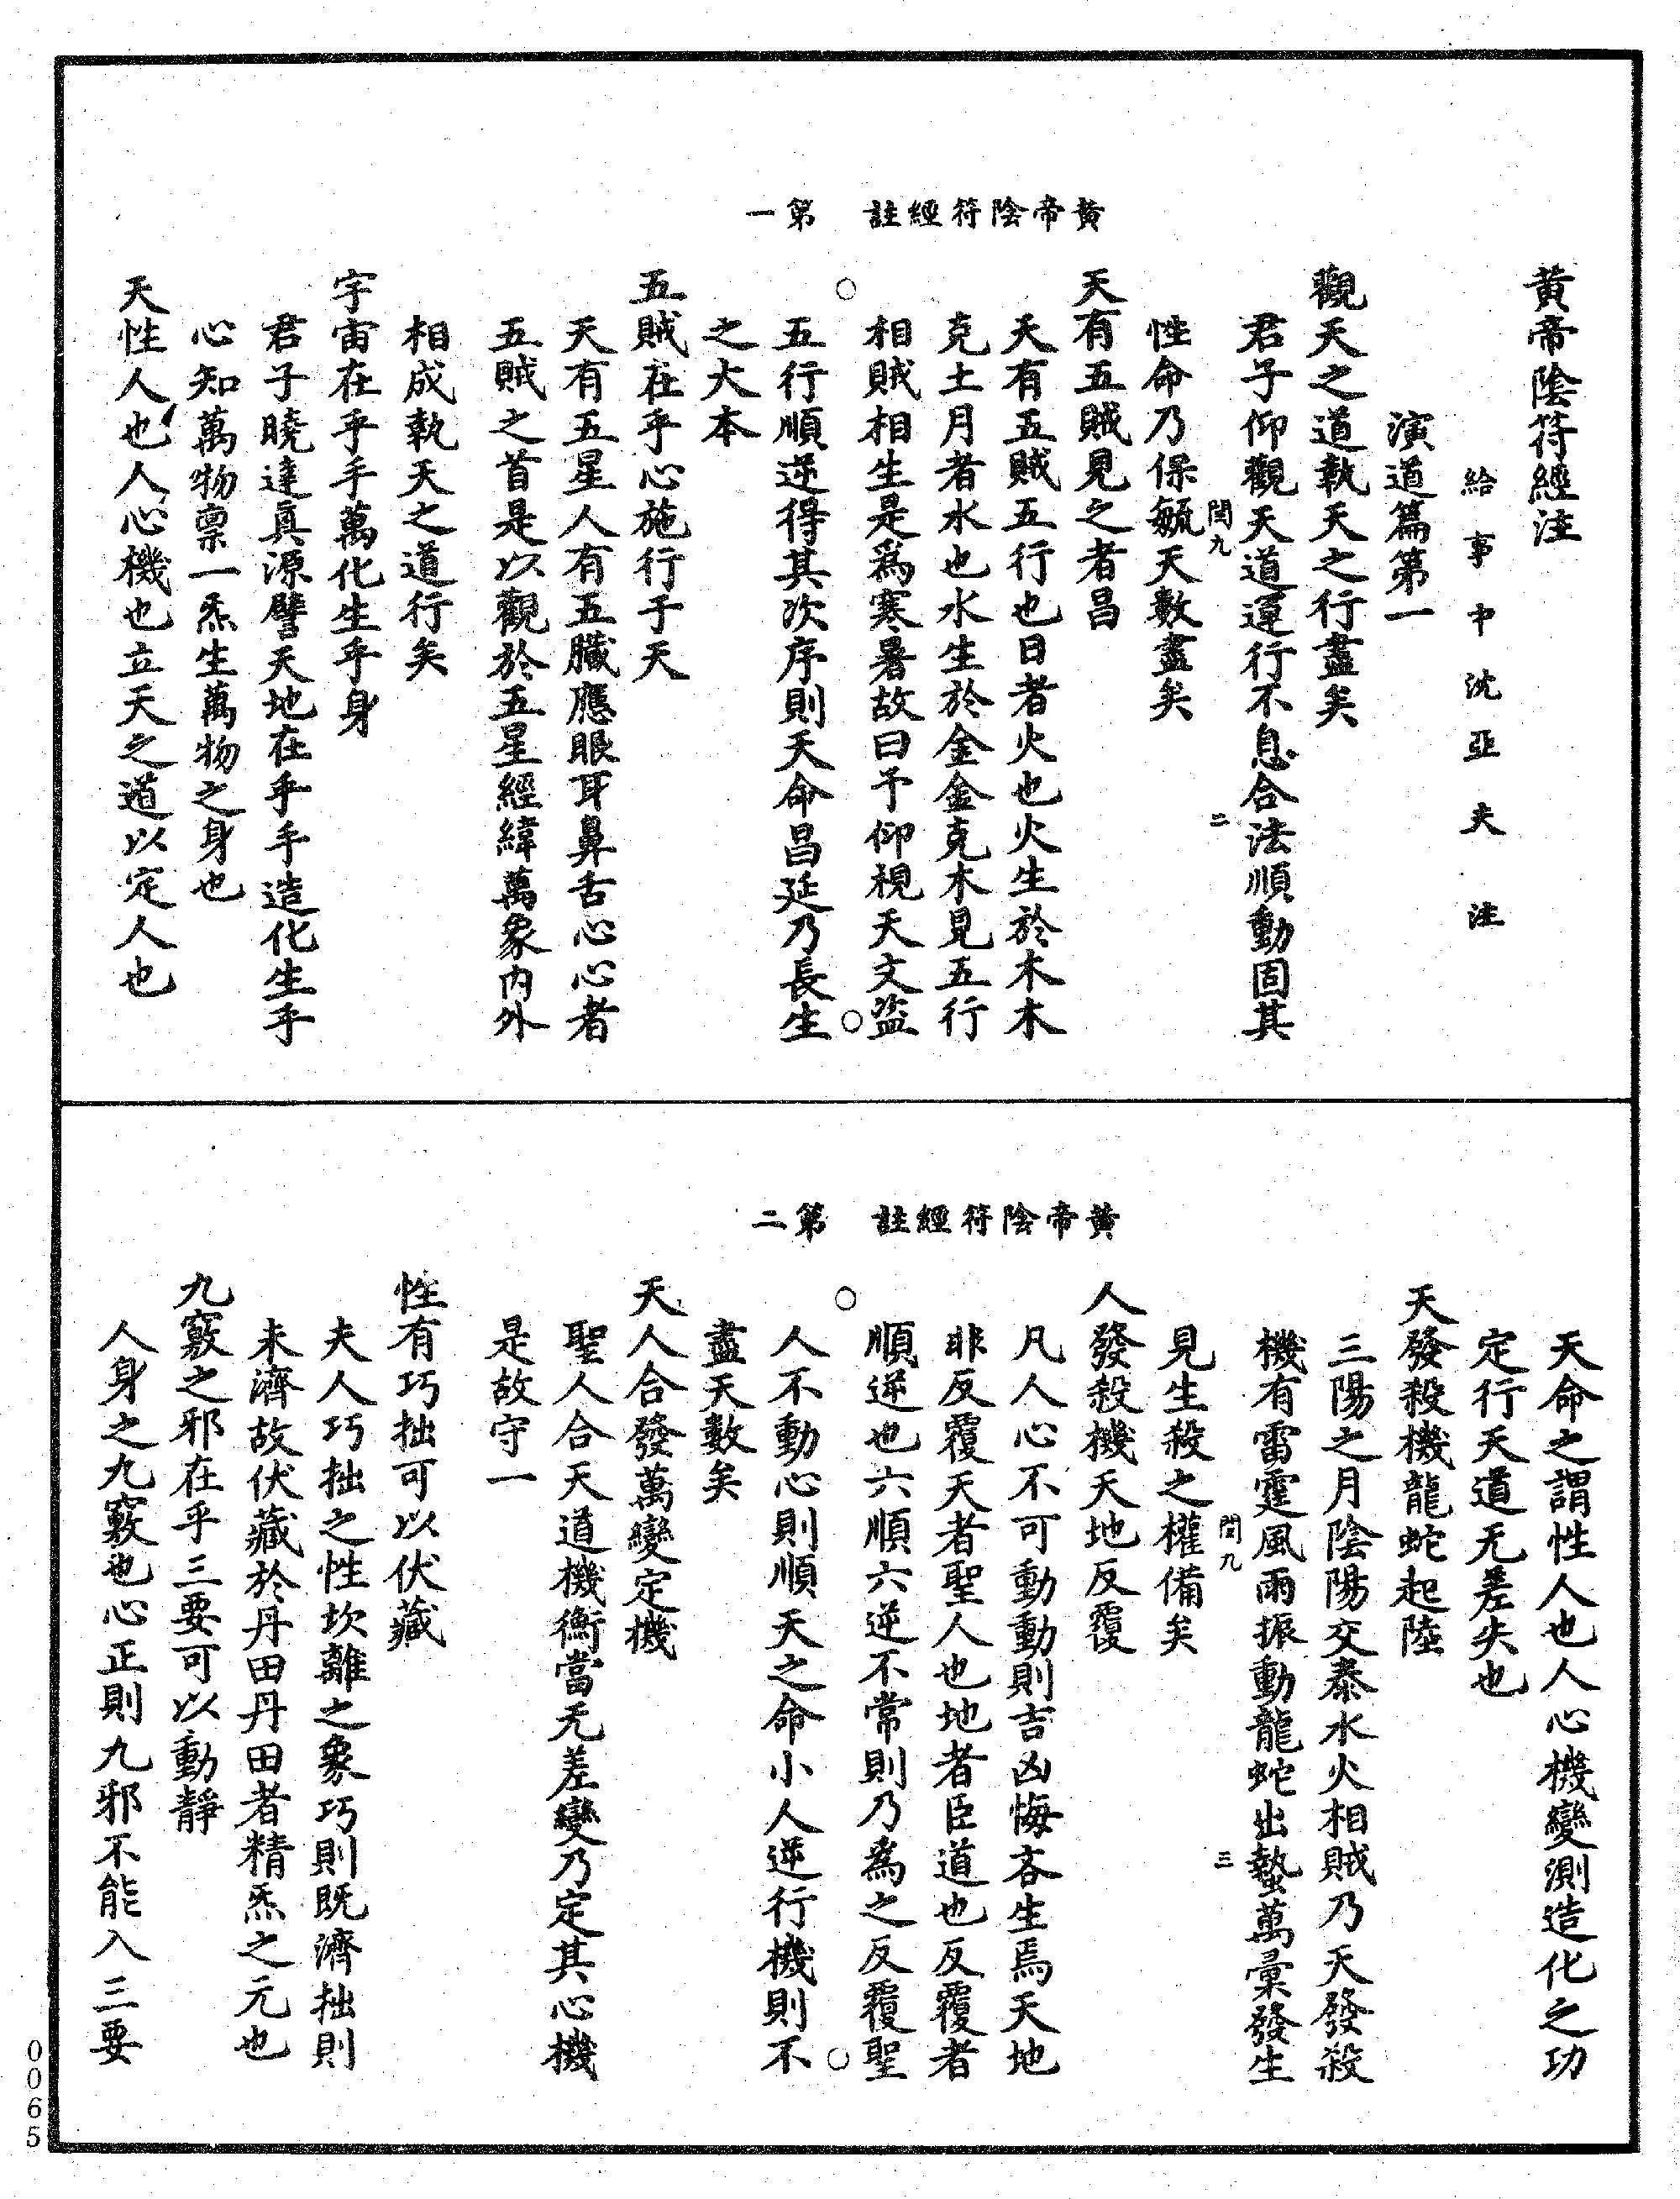 黃帝陰符經註　第一
黃帝陰符經注
給事中沈亞夫注
演道篇第一
觀天之道執天之行盡矣
君子仰觀天道運行不息合法順動固其
閏九　二
性命乃保毓天數盡矣
天有五賊見之者昌
天有五賊五行也日者火也火生於木木
克土月者水也水生於金金克木見五行
相賊相生是爲寒暑故曰予仰視天文盜
五行順逆得其次序則天命昌延乃長生
之大本
五賊在乎心施行于天
天有五星人有五臟應眼耳鼻舌心心者
五賊之首是以觀於五星經緯萬象內外
相成執天之道行矣
宇宙在乎手萬化生乎身
君子曉達真源譬天地在乎手造化生乎
心知萬物禀一炁生萬物之身也
天性人也人心機也立天之道以定人也
黃帝陰符經註　第二
天命之謂性人也人心機變測造化之功
定行天道无差失也
天發殺機龍蛇起陸
三陽之月陰陽交泰水火相賊乃天發殺
機有雷霆風雨振動龍蛇出蟄萬彙發生
閏九　三
見生殺之權備矣
人發殺機天地反覆
凡人心不可動動則吉凶悔吝生焉天地
非反覆天者聖人也地者臣道也反覆者
順逆也六順六逆不常則乃爲之反覆聖
人不動心則順天之命小人逆行機則不
盡天數矣
天人合發萬變定機
聖人合天道機衡當无差變乃定其心機
是故守一
性有巧拙可以伏藏
夫人巧拙之性坎離之象巧則既濟拙則
未濟故伏藏於丹田丹田者精炁之元也
九竅之邪在乎三要可以動靜
人身之九竅也心正則九邪不能入三要
0065